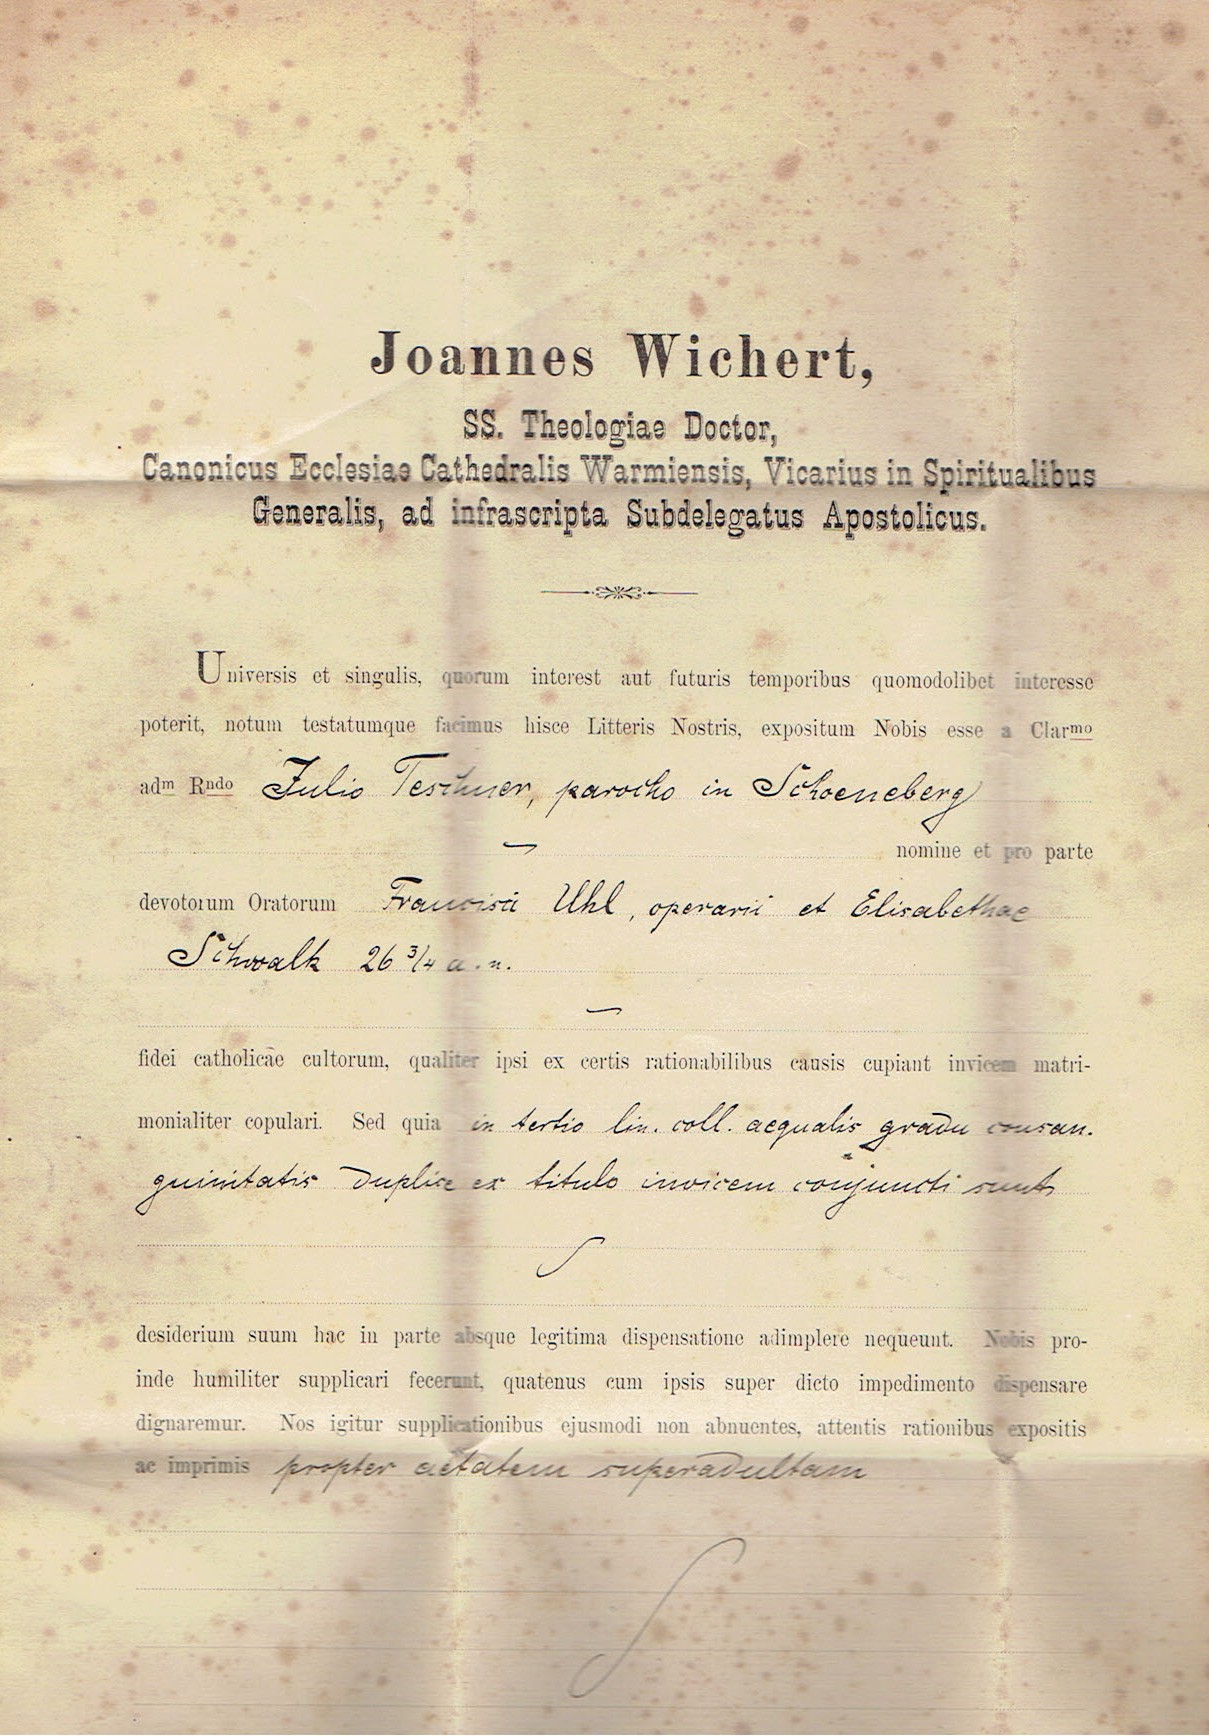 Joannes Wichert,
SS. Theologiae Doctor,
Canonicus Ecclesiae Cathedralis Warmiensis, Vicarius in Spiritualibus
Generalis, ad infrascripta Subdelegatus Apostolicus.
Universis et singulis, quorum interest aut futuris temporibus quomodolibet interesse
poterit, notum testatumque facimus hisce Litteris Nostris, expositum Nobis esse a Clarmo
adm Rndo Julio Teschner, parocho in Schoeneberg
nomine et pro parte
devotorum Oratorum Francisci Uhl, operarii et Elisabethae
Schwalk 26 3/4 a. n.
fidei catholicae cultorum, qualiter ipsi ex certis rationabilibus causis cupiant invicem matri-
monialiter copulari. Sed quia in tertio lin. coll. aequalis gradu consan.
guinitatis duplice ex titulo invicem conjuncti sunt
desiderium suum hac in parte absque legitima dispensatione adimplere nequeunt. Nobis pro-
inde humiliter supplicari fecerunt, quatenus cum ipsis super dicto impedimento dispensare
dignaremur. Nos igitur supplicationibus ejusmodi non abnuentes, attentis rationibus expositis
ac imprimis propter aetatem superadultam